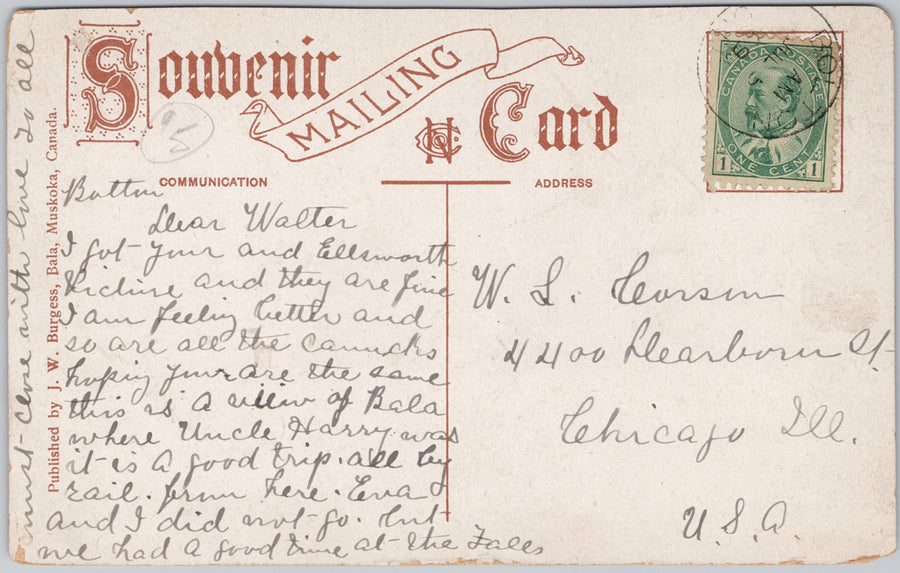 Souvenir
MAILING
Card
COMMUNICATION
ADDRESS
CANADA POSTAGE
ONE CENT
1 1
AM
Published by J. W. Burgess, Bala, Muskoka, Canada.
Dear Walter
I got your and Ellsworth
Picture and they are fine
I am feeling better and
so are all the Canucks
hoping your are the same
this is a view of Bala
where Uncle Harry was
it is a good trip. all by
rail. from here. Eva
and I did not go. but
we had a good time at the Falls
must close with love to all
W. L. Corson
4400 Dearborn St.
Chicago Ill.
U.S.A.